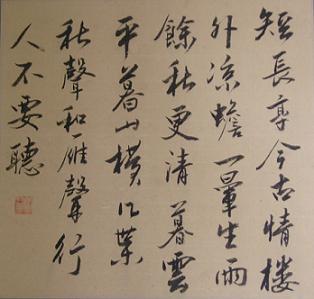 短長亭今古情樓
外凉蟾一暈生雨
餘秋更清暮雲
平暮山橫几葉
秋聲和雁聲行
人不要聽